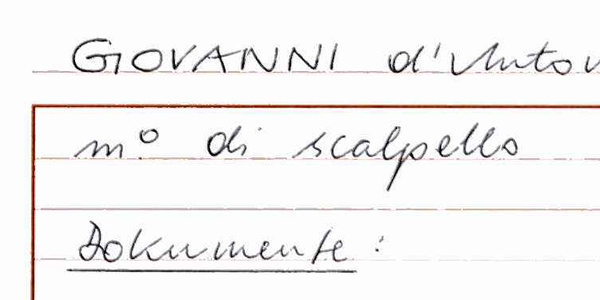 GIOVANNI d'Anton
m.º di scalpello
Dokumente: